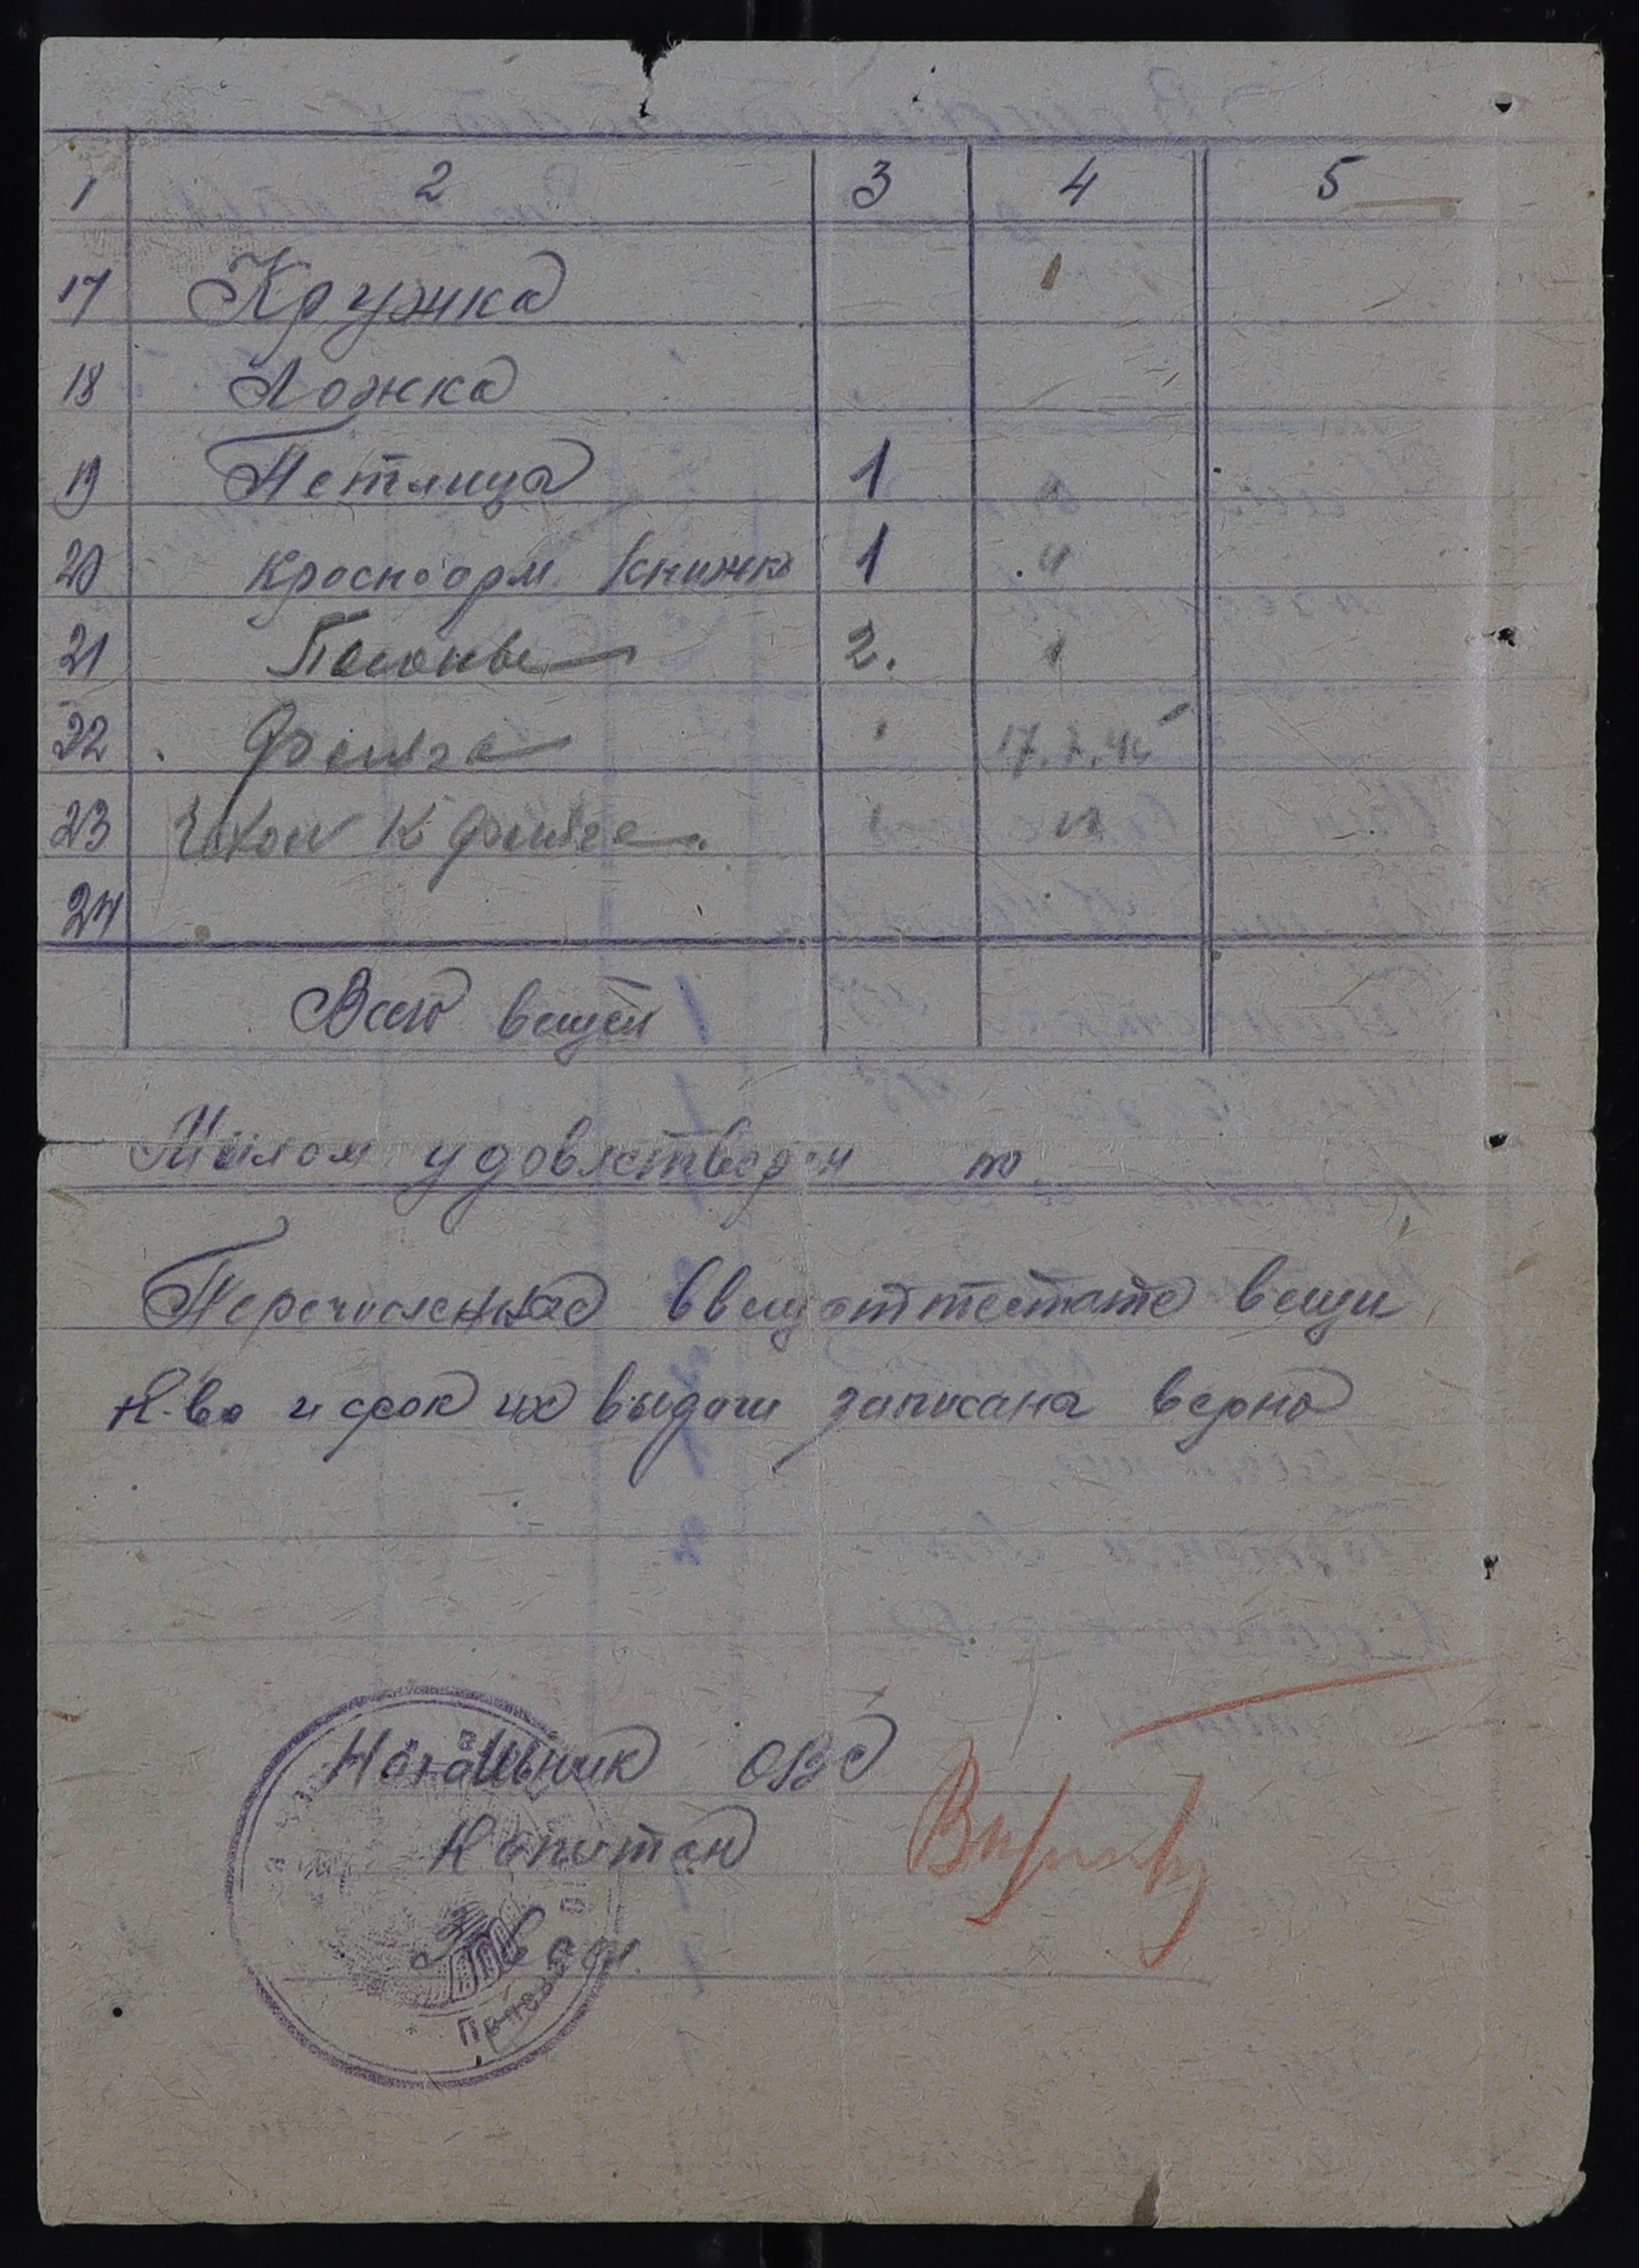 1 2 3 4 5
17 Кружка
18 Ложка
19 Петлица 1 "
20 Красноарм. книжка 1 "
21 Погоны 2. "
22 Фляга 17.7.
23 Чехол к фляге. "
24
Всего вещей
Мылом удовлетворен по
Перечисленная в вещаттестате вещи
к-во и срок их выдачи записана верно
Начальник ОВС
Капитан